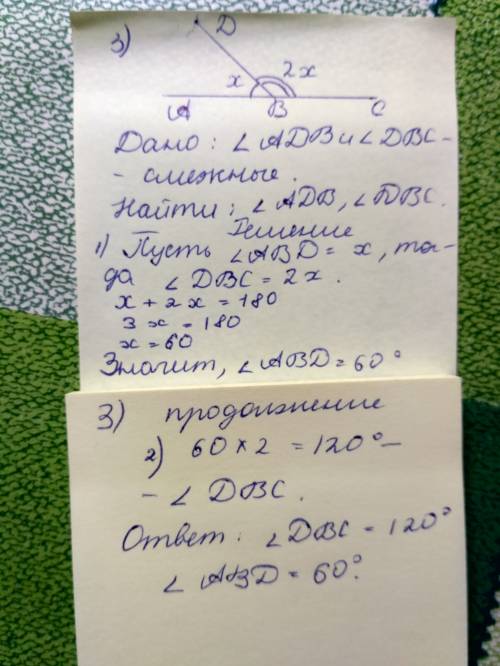 3)
D
x 2x
A B C
Дано: ∠ADB и ∠DBC-
- смежные.
Найти: ∠ADB, ∠DBC.
Решение
1) Пусть ∠ABD = x, тог-
да ∠DBC = 2x.
x + 2x = 180
3x = 180
x = 60
Значит, ∠ABD = 60°
3) продолжение
2) 60 × 2 = 120° –
- ∠DBC.
Ответ: ∠DBC = 120°
∠ABD = 60°.